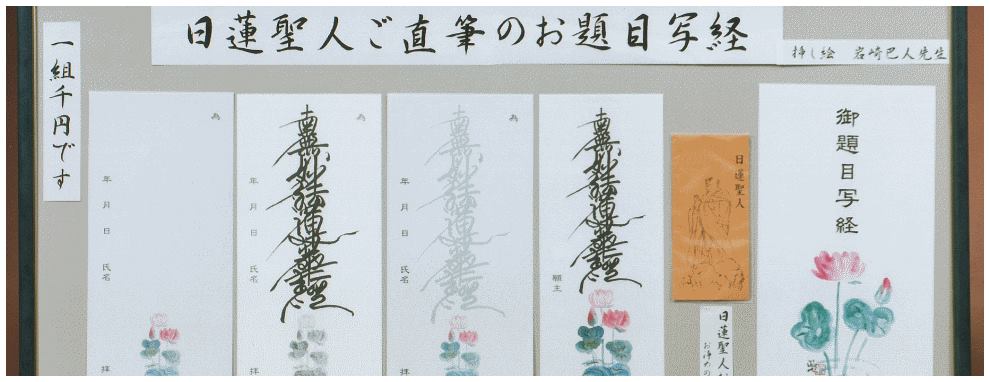 日蓮聖人ご直筆のお題目写経
挿し絵 岩崎巴人先生
一組千円です
御題目写経
日蓮聖人
日蓮聖人
願主
南無妙法蓮華経
為
南無妙法蓮華経
年 月 日 氏名
拝
為
南無妙法蓮華経
年 月 日 氏名
為
年 月 日 氏名
拝